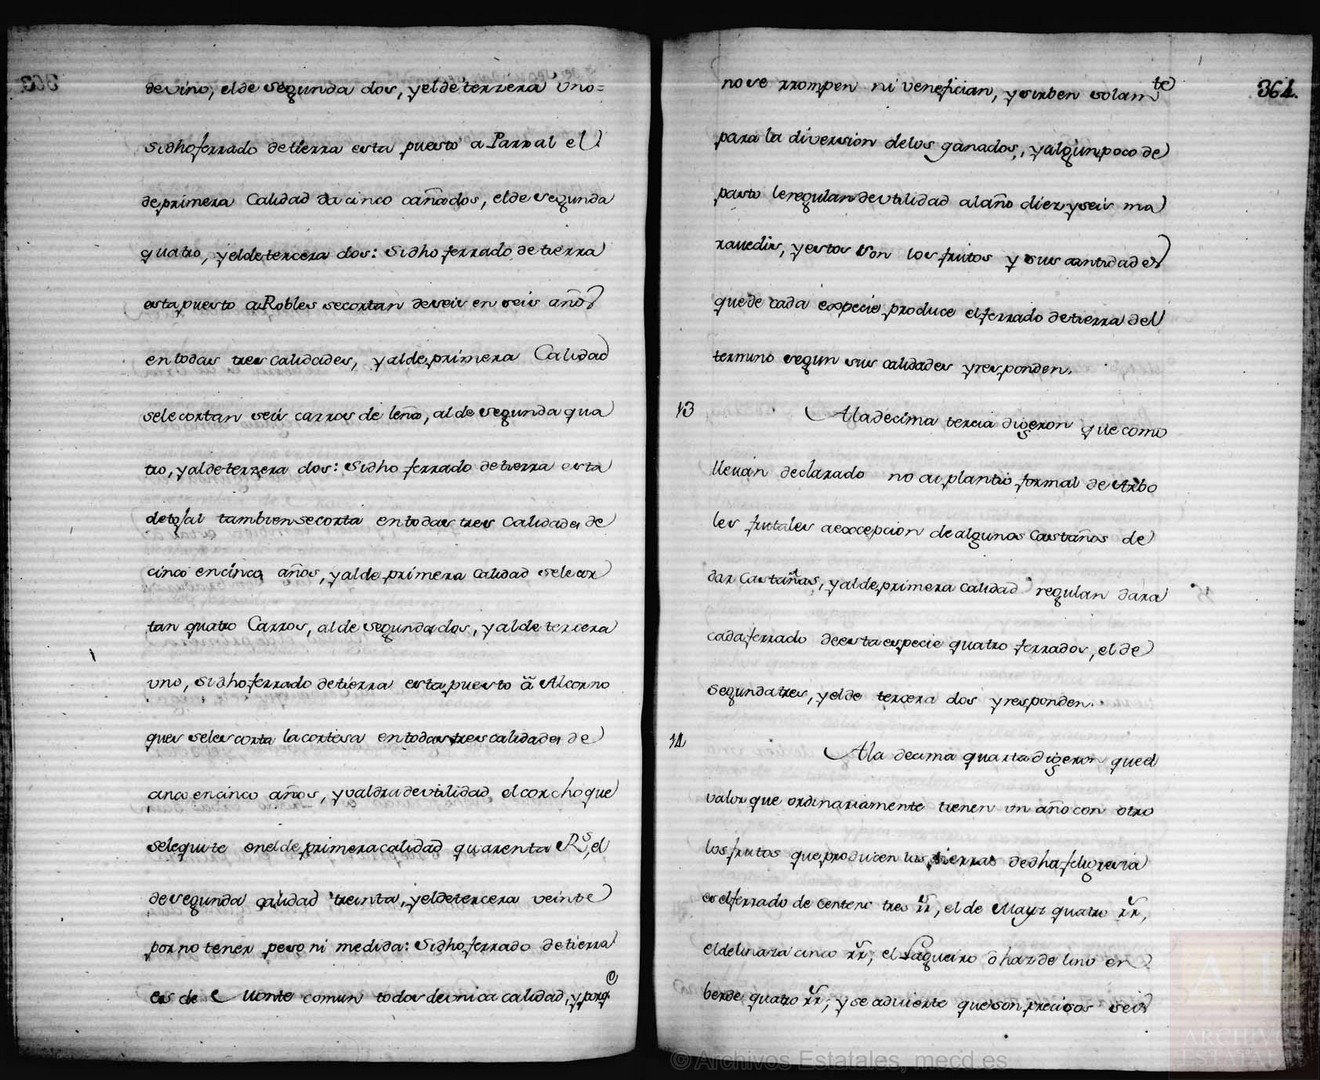 de vino, el de segunda dos, y el de terzera uno=
Si dho ferrado de tierra esta puesto a Parral el
de primera Calidad da cinco cañados, el de segunda
quatro, y el de tercera dos: Si dho ferrado de tierra
esta puesto a Robles se cortan de seis en seis años
en todas tres calidades, y al de primera Calidad
se le cortan seis carros de leña, al de segunda qua
tro, y al de terzera dos: Si dho ferrado de tierra esta
de tojal tambien se corta en todas tres Calidades de
cinco en cinco años, y al de primera Calidad se le cor
tan quatro Carros, al de segunda dos, y al de tercera
uno, si dho ferrado de tierra esta puesto â Alcorno
ques se les corta la corteza en todas tres calidades de
cinco en cinco años, y valdra de utilidad el corcho que
se le quite en el de primera calidad quarenta Rs, el
de segunda calidad treinta, y el de tercera veinte
por no tener peso ni medida: Si dho ferrado de tierra
es de Monte comun todo es de unica calidad, y porq
364.
no se rrompen ni venefician, y sirben solam te
para la diversion de los ganados, y algun poco de
pasto le regulan de utilidad al año diez y seis ma
ravedis, y estos son los frutos y sus cantidades
que de cada expecie produce el ferrado de tierra del
termino segun sus calidades y responden.
13 A la decima tercia digeron que como
llevan declarado no ai plantio formal de Arbo
les frutales a excepcion de algunos Castaños de
dar Castañas, y al de primera calidad regulan dara
cada ferrado de esta especie quatro ferrados, el de
segunda tres, y el de tercera dos y responden.
14 A la decima quarta digeron que el
valor que ordinariamente tienen un año con otro
los frutos que producen las tierras de dha feligresia
es el ferrado de Centeno tres rr, el de Mayz quatro rr,
el de linaza cinco rr, el Fagueiro ô haz de lino en
berde quatro rr; y se advierte que son precisos seis
© Archivos Estatales, mecd.es
ARCHIVOS
ESTATALES